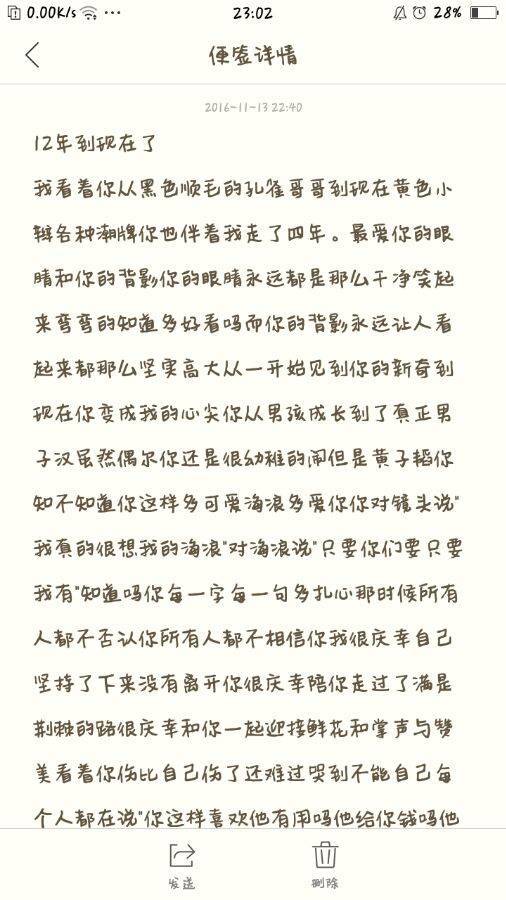 0.00K/s ... 23:02 28%
便签详情
2016-11-13 22:40
12年到现在了
我看着你从黑色顺毛的孔雀哥哥到现在黄色小
辫各种潮牌你也伴着我走了四年。最爱你的眼
睛和你的背影你的眼睛永远都是那么干净笑起
来弯弯的知道多好看吗而你的背影永远让人看
起来都那么坚实高大从一开始见到你的新奇到
现在你变成我的心尖你从男孩成长到了真正男
子汉虽然偶尔你还是很幼稚的闹但是黄子韬你
知不知道你这样多可爱海浪多爱你你对镜头说"
我真的很想我的海浪"对海浪说"只要你们要只要
我有"知道吗你每一字每一句多扎心那时候所有
人都不否认你所有人都不相信你我很庆幸自己
坚持了下来没有离开你很庆幸陪你走过了满是
荆棘的路很庆幸和你一起迎接鲜花和掌声与赞
美看着你伤比自己伤了还难过哭到不能自己每
个人都在说"你这样喜欢他有用吗他给你钱吗他
发送 删除